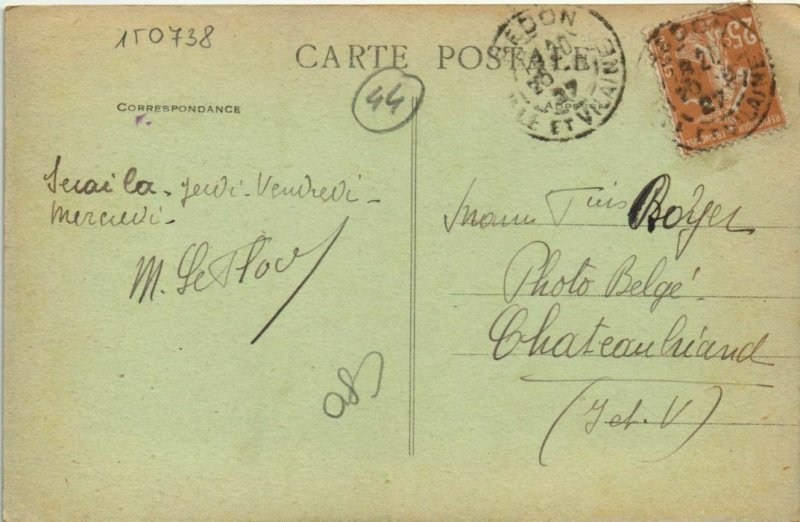 150738
CARTE POSTALE
44
REDON
20
27
ILLE ET VILAINE
25
CORRESPONDANCE
Serai la - Jeudi - Vendredi -
Mercredi -
M. Le Floc
Boyer
Photo Belge
Chateaubriand
(I et V)